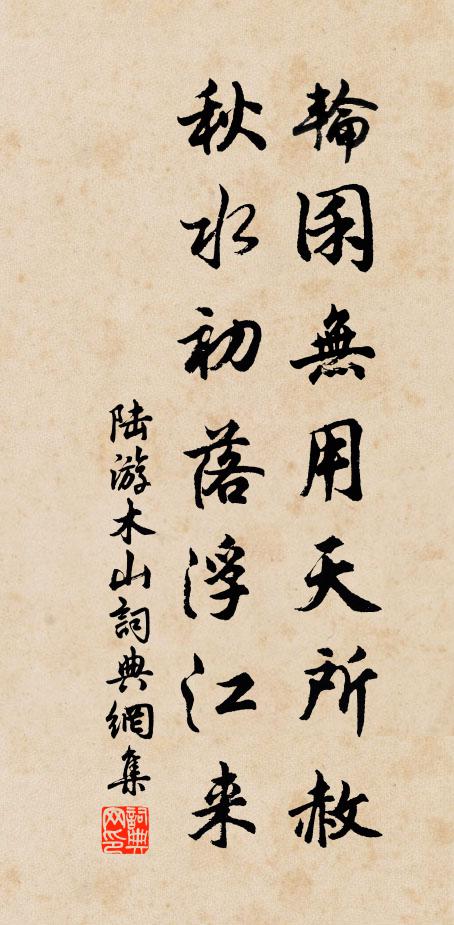 輪囷無用天所赦
秋水初落浮江来
陆游木山詞典網集
詞典网印